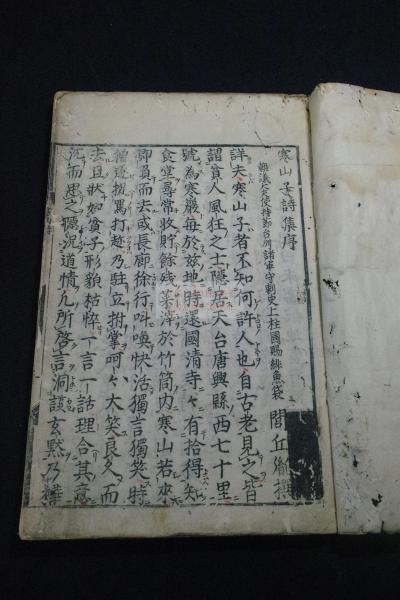 寒山子詩集序
朝議大夫使持節台州諸軍守刺史上柱國賜緋魚袋 閭丘胤撰
詳夫寒山子者不知何許人也自古老見之皆
謂貧人風狂之士隱居天台唐興縣西七十里
號為寒巖每於茲地時還國清寺々有拾得知
食堂尋常收貯餘殘菜滓於竹筒內寒山若來
即負而去或長廊徐行叫喚快活獨言獨笑時
僧遂捉罵打趁乃駐立拊掌呵々大笑良久而
去且狀如貧子形貌枯悴一言一話理合其意
沉而思之隱況道情凡所啓言洞談玄默乃樺